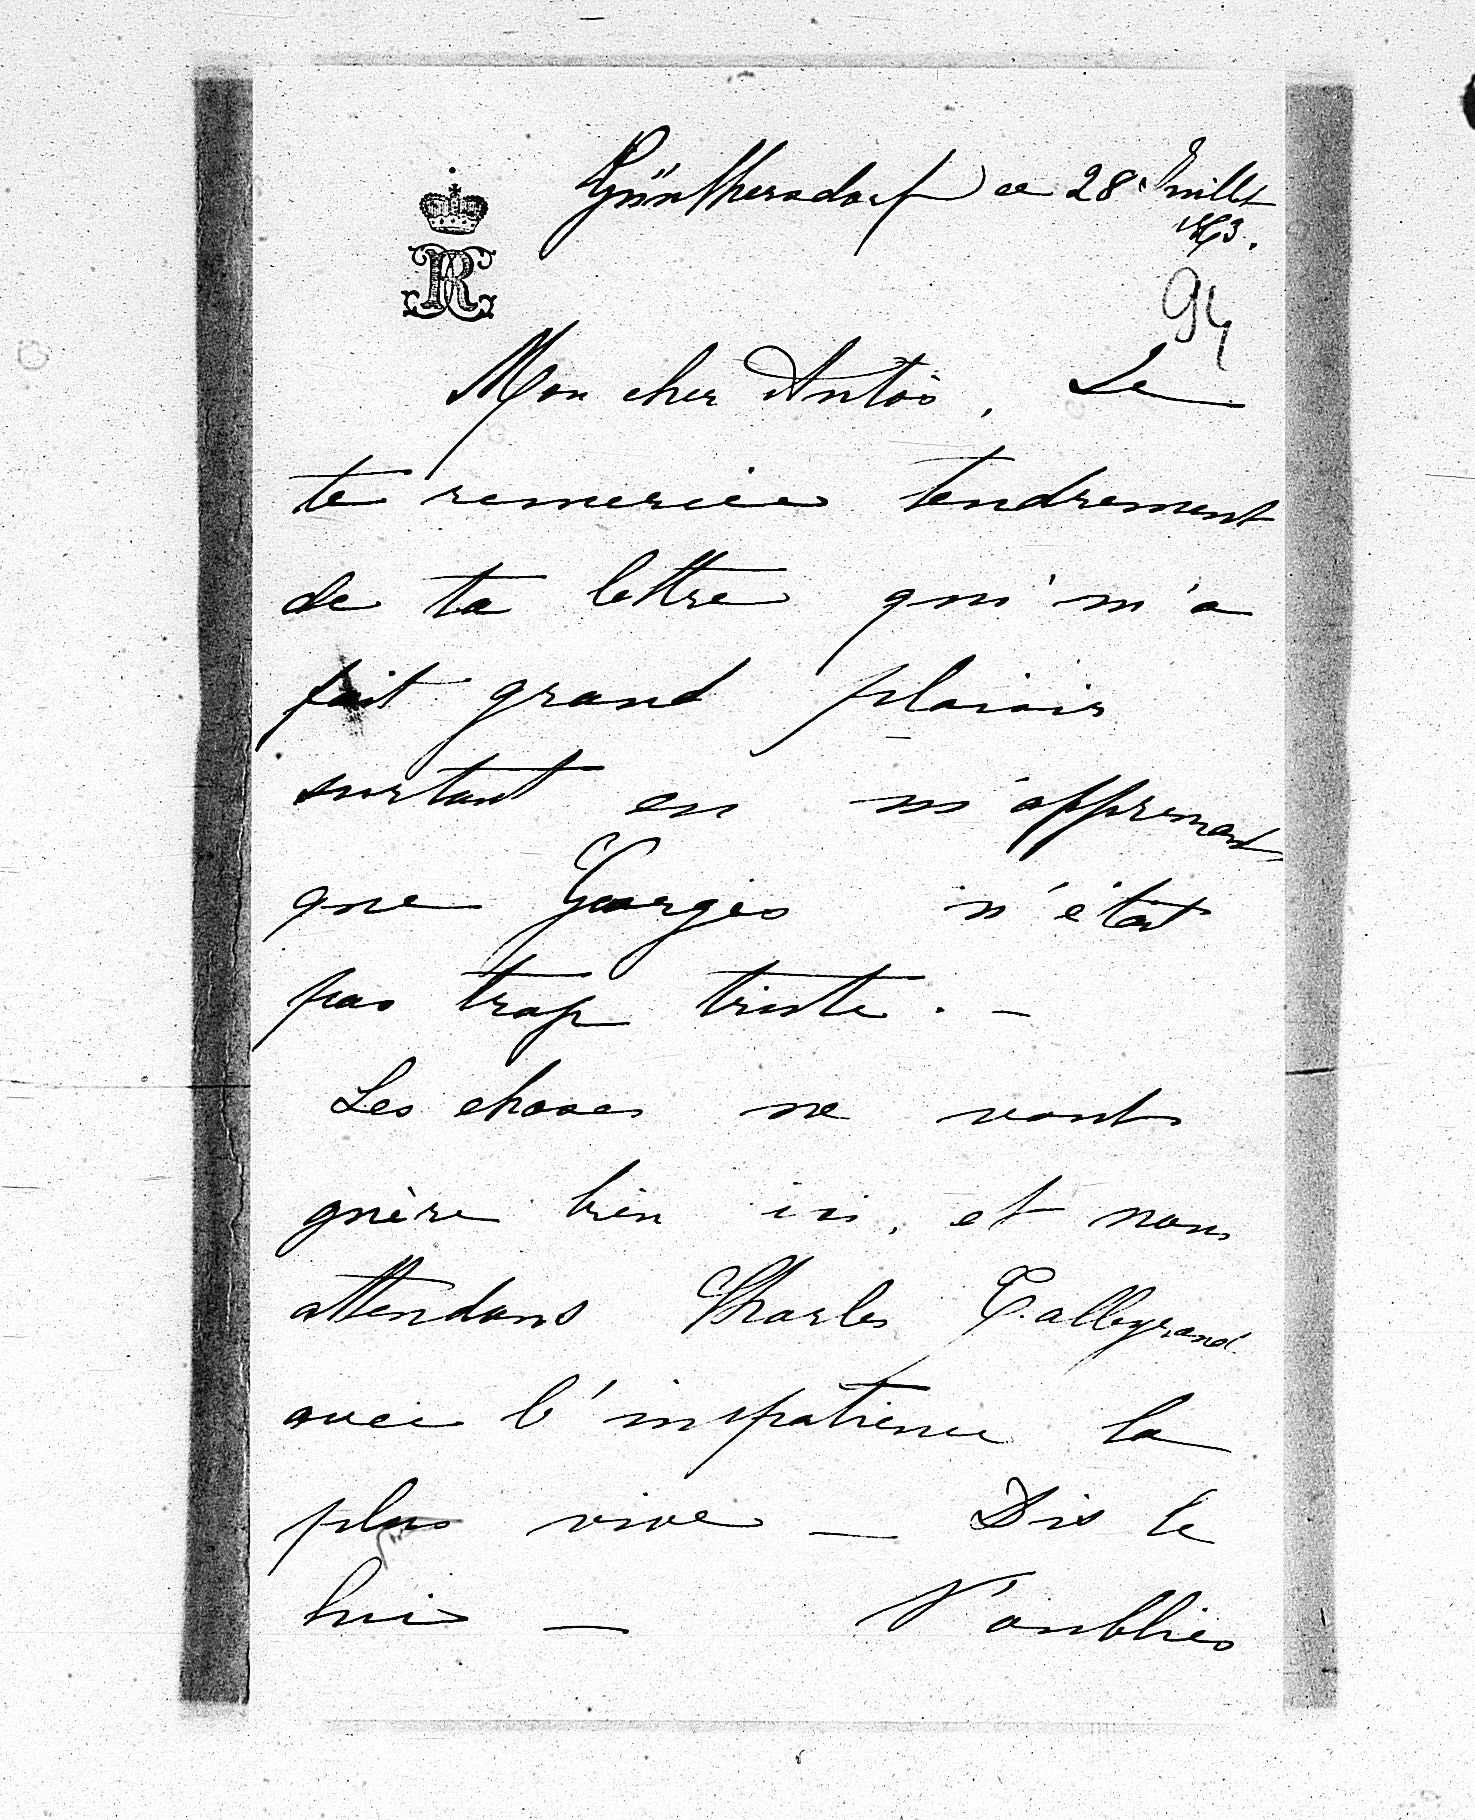 Günthersdorf ce 28 Juillet
1863.
94
Mon cher Antoś, Je
te remercie tendrement
de ta lettre qui m'a
fait grand plaisir
surtout en m'apprenant
que Georges n'était
pas trop triste. —
Les choses ne vont
guère bien ici, et nous
attendons Charles Talleyrand
avec l'impatience la
plus vive — Dis le
lui — N'oublies